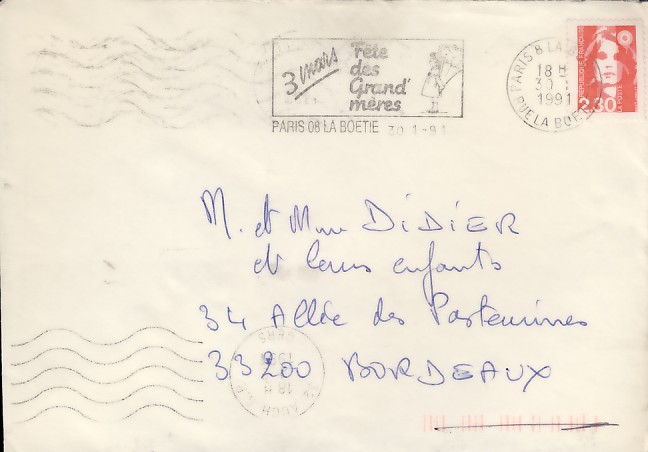 3 mars
Fête
des
Grand'
mères
PARIS 08 LA BOETIE 30-1-91
PARIS 8 LA B
18 H
30
1991
RUE LA BOETIE
REPUBLIQUE FRANÇAISE
2,30
LA POSTE
M. et Mme DiDiER
et leurs enfants
34 Allée des
33200 BORDEAUX
GERS
18 H